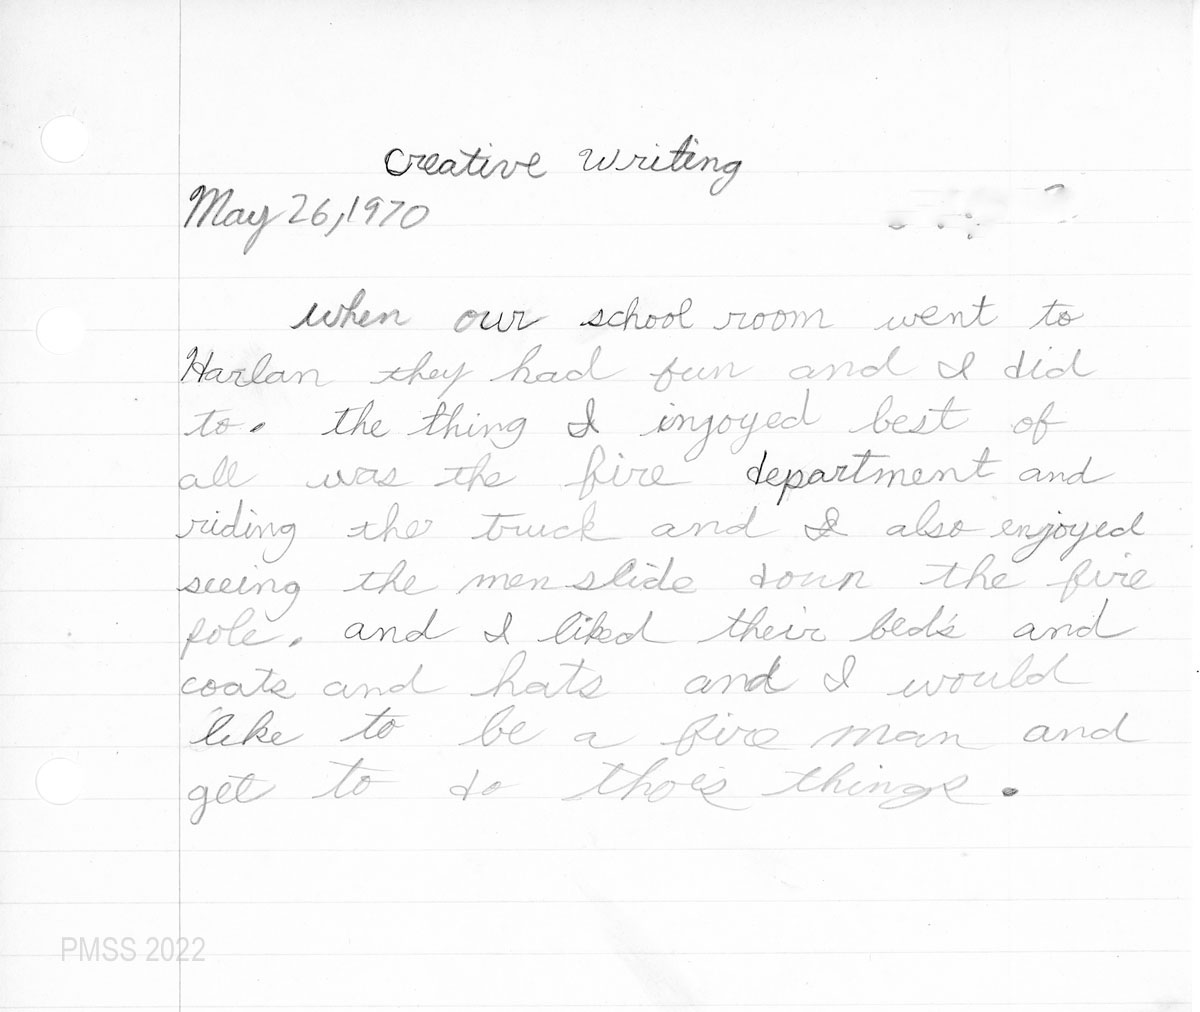 Creative Writing
May 26, 1970
when our school room went to
Harlan they had fun and I did
to. the thing I injoyed best of
all was the fire department and
riding the truck and I also enjoyed
seeing the men slide down the fire
pole. and I liked their bed's and
coats and hats and I would
like to be a fire man and
get to do thoes things.
PMSS 2022